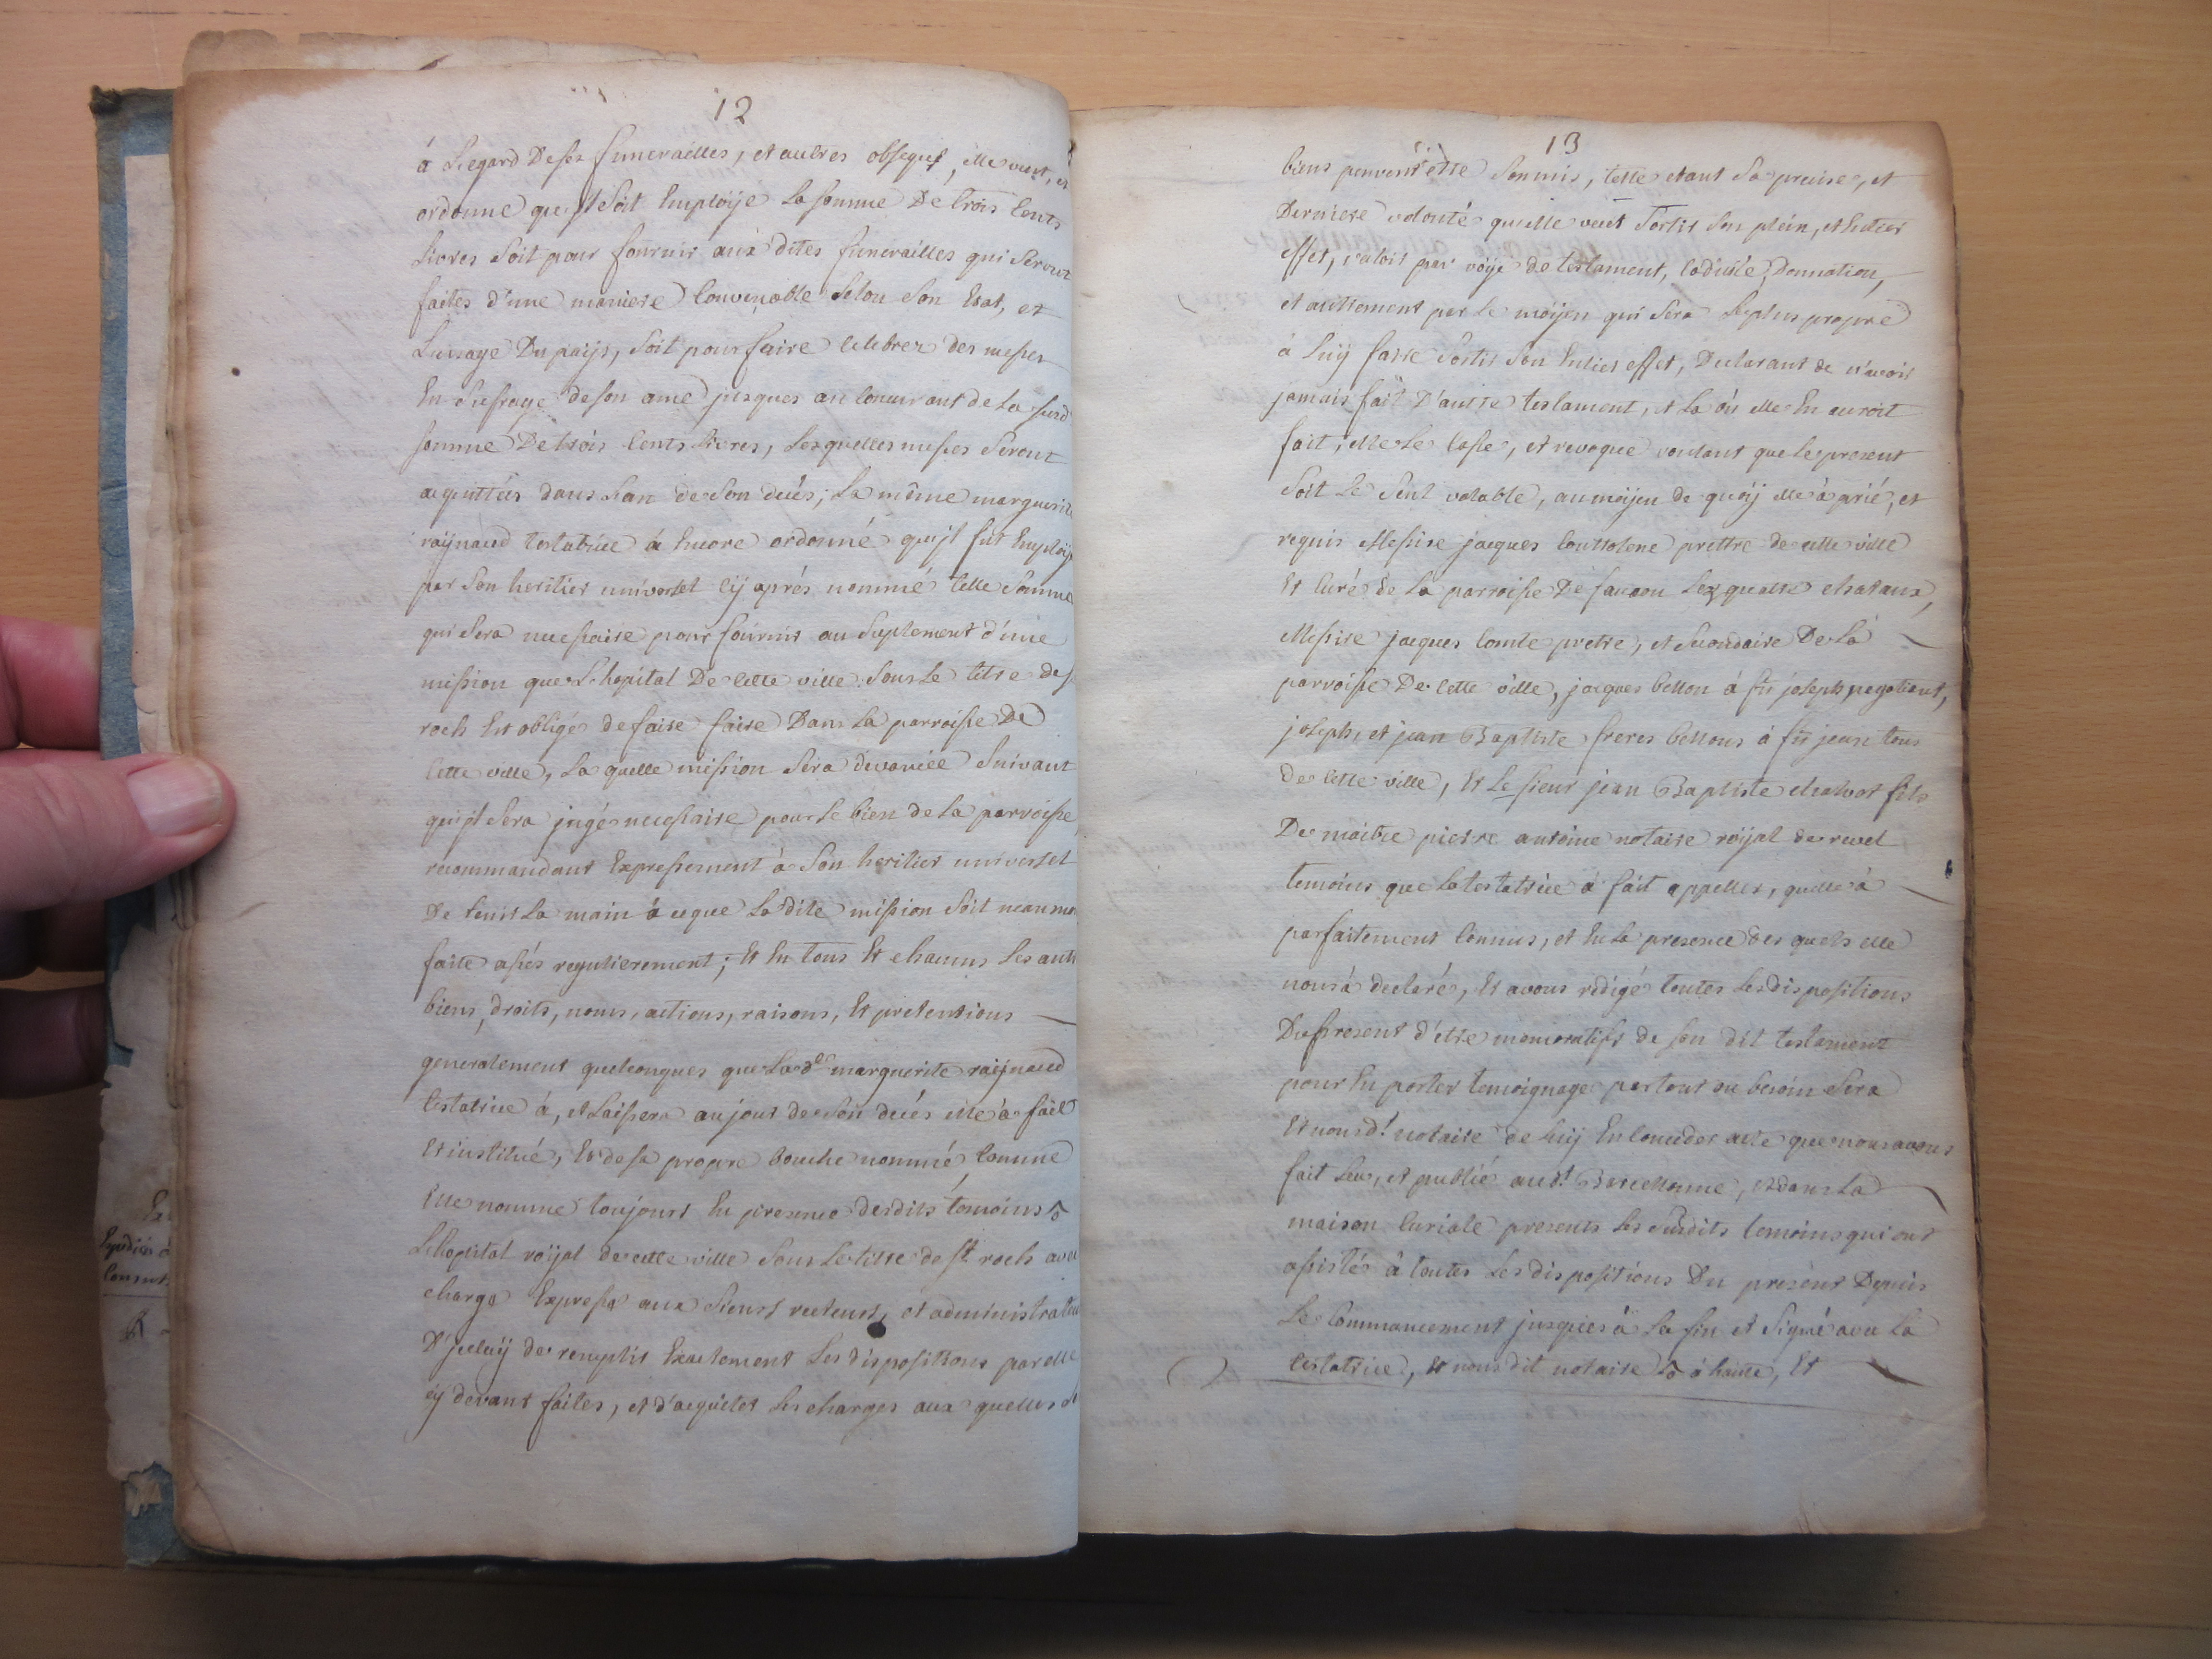 12
à Legard De ses funerailles, et autres obseques, elle veut, et
ordonne qu'jl soit Employé La somme De trois Cents
Livres soit pour fournir aux dites funerailles qui seront
faites d'une maniere Convenable selon son Etat, et
L'usage Du païjs, soit pour faire Celebrer des messes
En sufrage de son ame jusques au Concurrant de La susd
somme De trois Cents Livres, Lesquelles messes seront
acquittées dans L'an de son decés; La même marguerite
raijnaud testatrice à Encore ordonné qu'jl fut Employé
par son heritier universel Cij aprés nommé telle somme
qui sera necessaire pour fournir au suplement d'une
mission que L'hopital De Cette ville sous Le titre de s
roch Est obligé de faire faire Dans La parroisse De
Cette ville, La quelle mission sera devancée suivant
qu'jl sera jugé necessaire pour Le bien de La parroisse
recommandant Expressement à son heritier universel
De tenir La main à ceque La dite mission soit neanmo
faite assés regulierement; Et En tous Et chacuns Ses autr
biens, droits, noms, actions, raisons, Et pretentions
generalement quelconques que La de marguerite raijnaud
testatrice à, et Laissera au jour de son decés elle à fait
Et institué, Et de sa propre bouche nommé Comme
Elle nomme toujours En presence desdits temoins
L'hopital roijal de cette ville sous Le titre de st roch avec
charge Expresse aux sieurs recteurs, et administrateu
D'jceluij de remplir Exactement Les dispositions par elle
cij devant faites, et d'acquiter Les charges aux quelles
13
biens peuvent etre soumis, telle etant sa precise, et
Derniere volonté quelle veut sortir son plein, et Entier
effet, valoir par voije de testament, Codicile, Donnation,
et autrement par Le moijen qui sera Leplus propre
à Luij faire sortir son Entier effet, Declarant de n'avoir
jamais fait D'autre testament, et La où elle En auroit
fait, elle Le Casse, et revoque voulant que Le present
soit Le seul valable, au moijen de quoij elle à prié, et
requis Messire jacques Couttolene prettre de cette ville
Et Curé de La parroisse De faucon Les quatre chataux,
Messire jacques Comte pretre, et secondaire De La
parroisse De Cette ville, jacques bellon à fû joseph negotiant,
joseph, et jean Baptiste freres bellons à fû jean tous
De Cette ville, Et Le sieur jean Baptiste chalvot fils
De maitre pierre antoine notaire roijal de revel
temoins que La testatrice à fait appeller, quelle à
parfaitement Connus, et En La presence des quels elle
nous à declaré, Et avons redigé toutes Les dispositions
Du present d'etre memoratifs de son dit testament
pour En porter temoignage partout ou besoin sera
Et nous dt notaire de Luij En Conceder acte que nous avons
fait Leu, et publié aud.t Barcelonne, et dans La
maison Curiale presents Les susdits temoins qui ont
assistés à toutes Les dispositions Du present Depuis
Le Commancement jusques à La fin et signé avec La
testatrice, Et nous dit notaire à haute, Et